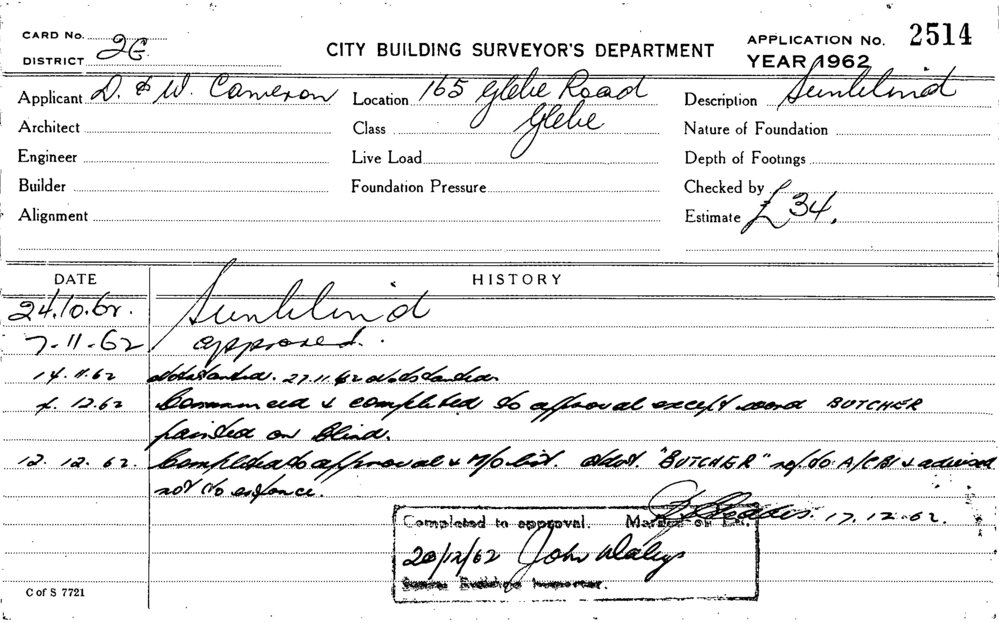 CARD No. 2G.
DISTRICT
CITY BUILDING SURVEYOR'S DEPARTMENT
APPLICATION No. 2514
YEAR 1962
Applicant D. & W. Cameron
Location 165 Glebe Road
Glebe
Description Sunblind
Architect
Class
Nature of Foundation
Engineer
Live Load
Depth of Footings
Builder
Foundation Pressure
Checked by
Alignment
Estimate £34.
DATE
HISTORY
24.10.62. Sunblind
7-11-62 approved.
14.11.62 Not started. 27.11.62 Not started.
12.62 Commenced & completed to approval except word BUTCHER
painted on blind.
12.12.62. Completed to approval & M/O list. "BUTCHER" ref. to A/CBI & advised
not to enforce.
17.12.62.
Completed to approval. Marked on
20/12/62 John
Building Inspector.
C of S 7721